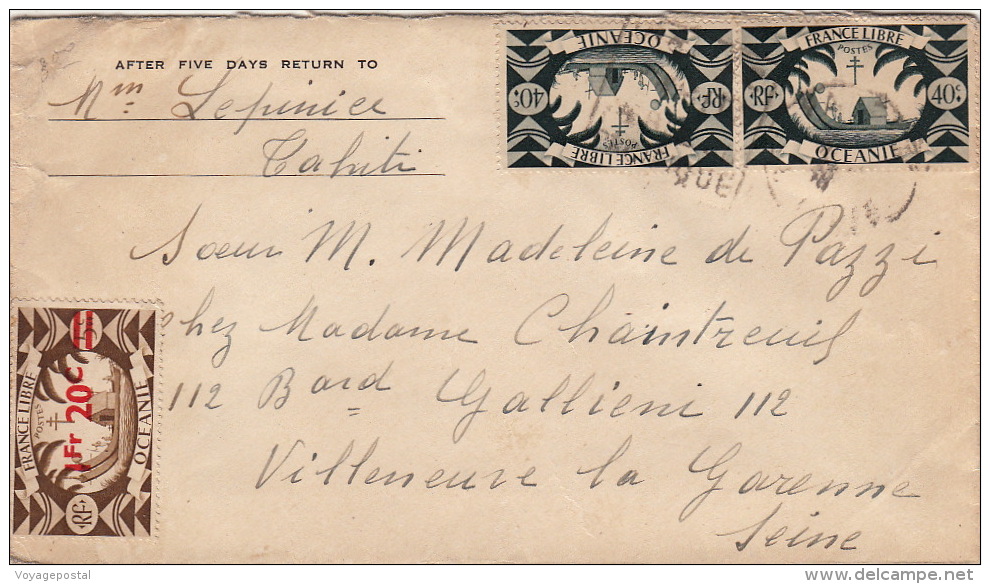 AFTER FIVE DAYS RETURN TO
Mm Lepinice
Tahiti
FRANCE LIBRE
POSTES
RF 40c
OCEANIE
FRANCE LIBRE
POSTES
RF 40c
OCEANIE
Soeur M. Madeleine de Pazzi
chez Madame Chaintreuil
112 Bard Gallieni 112
Villeneuve la Garenne
Seine
FRANCE LIBRE
POSTES
RF 5c
1Fr 20c
OCEANIE
Voyagepostal
delcampe.net